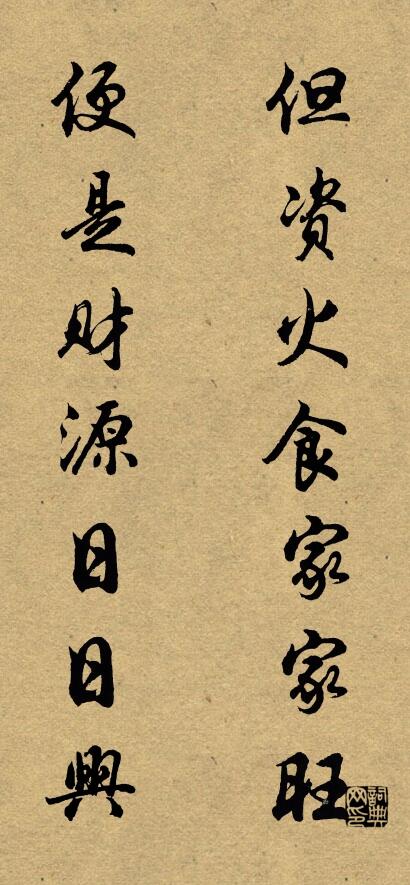 但资火食家家旺
便是财源日日興
詞典网印